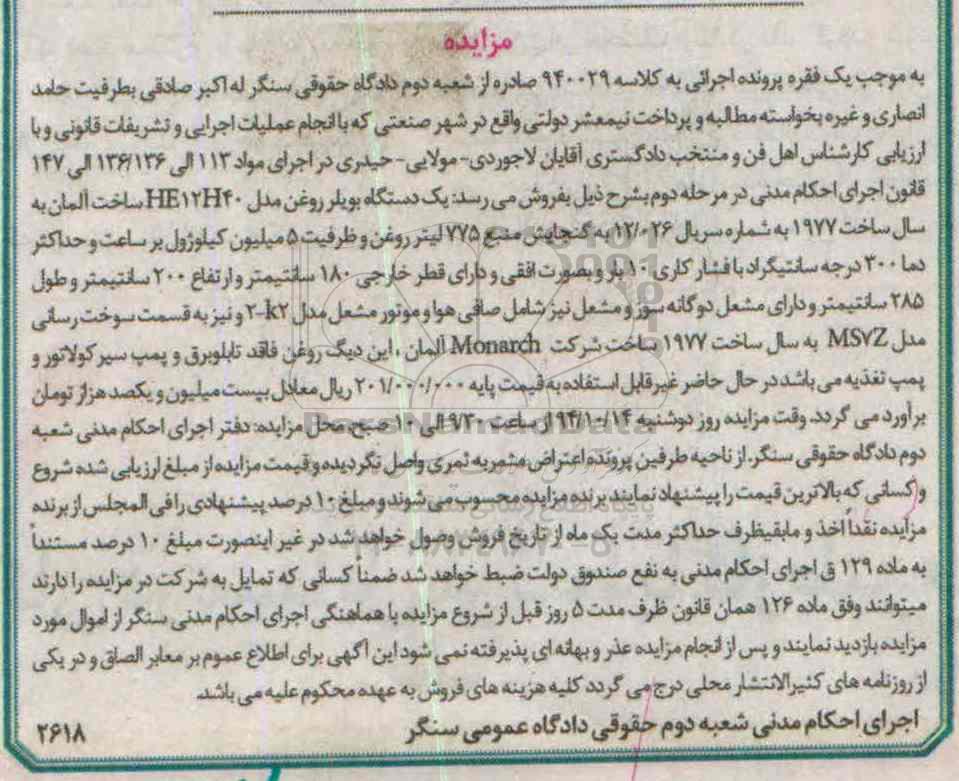 مزایده
به موجب یک فقره پرونده اجرائی به کلاسه ۹۴۰۰۲۹ صادره از شعبه دوم دادگاه حقوقی سنگر له اکبر صادقی بطرفیت حامد
انصاری و غیره بخواسته مطالبه و پرداخت نیمعشر دولتی واقع در شهر صنعتی که با انجام عملیات اجرایی و تشریفات قانونی و با
ارزیابی کارشناس اهل فن و منتخب دادگستری آقایان لاجوردی- مولایی- حیدری در اجرای مواد ۱۱۳ الی ۱۳۶/۱۳۶ الی ۱۴۷
قانون اجرای احکام مدنی در مرحله دوم بشرح ذیل بفروش می رسد: یک دستگاه بویلر روغن مدل HE۱۲H۴۰ ساخت آلمان به
سال ساخت ۱۹۷۷ به شماره سریال ۱۲/۰۲۶ به گنجایش منبع ۷۷۵ لیتر روغن و ظرفیت ۵ میلیون کیلوژول بر ساعت و حداکثر
دما ۳۰۰ درجه سانتیگراد با فشار کاری ۱۰ بار و بصورت افقی و دارای قطر خارجی ۱۸۰ سانتیمتر و ارتفاع ۲۰۰ سانتیمتر و طول
۲۸۵ سانتیمتر و دارای مشعل دوگانه سوز و مشعل نیز شامل صافی هوا و موتور مشعل مدل ۲-k۲ و نیز به قسمت سوخت رسانی
مدل MS۷Z به سال ساخت ۱۹۷۷ ساخت شرکت Monarch آلمان ، این دیگ روغن فاقد تابلوبرق و پمپ سیرکولاتور و
پمپ تغذیه می باشد در حال حاضر غیرقابل استفاده به قیمت پایه ۲۰۱/۰۰۰/۰۰۰ ریال معادل بیست میلیون و یکصد هزار تومان
برآورد می گردد. وقت مزایده روز دوشنبه ۹۴/۱۰/۱۴ از ساعت ۹/۳۰ الی ۱۰ صبح، محل مزایده: دفتر اجرای احکام مدنی شعبه
دوم دادگاه حقوقی سنگر. از ناحیه طرفین پرونده اعتراض مثمربه ثمری واصل نگردیده و قیمت مزایده از مبلغ ارزیابی شده شروع
و کسانی که بالاترین قیمت را پیشنهاد نمایند برنده مزایده محسوب می شوند و مبلغ ۱۰ درصد پیشنهادی را فی المجلس از برنده
مزایده نقداً اخذ و مابقیظرف حداکثر مدت یک ماه از تاریخ فروش وصول خواهد شد در غیر اینصورت مبلغ ۱۰ درصد مستنداً
به ماده ۱۲۹ ق اجرای احکام مدنی به نفع صندوق دولت ضبط خواهد شد ضمناً کسانی که تمایل به شرکت در مزایده را دارند
میتوانند وفق ماده ۱۲۶ همان قانون ظرف مدت ۵ روز قبل از شروع مزایده با هماهنگی اجرای احکام مدنی سنگر از اموال مورد
مزایده بازدید نمایند و پس از انجام مزایده عذر و بهانه ای پذیرفته نمی شود این آگهی برای اطلاع عموم بر معابر الصاق و در یکی
از روزنامه های کثیرالانتشار محلی درج می گردد کلیه هزینه های فروش به عهده محکوم علیه می باشد.
اجرای احکام مدنی شعبه دوم حقوقی دادگاه عمومی سنگر
۲۶۱۸